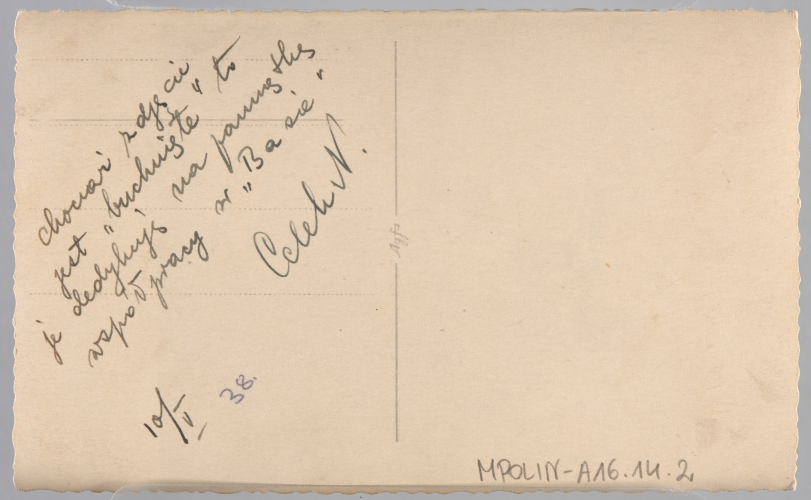 chociaż zdjęcie
jest "buchnięte" to
je dedykuję na pamiątkę
współpracy w "Basie"
Celeh N.
10/V 38.
Agfa
MPOLIN-A16.14.2